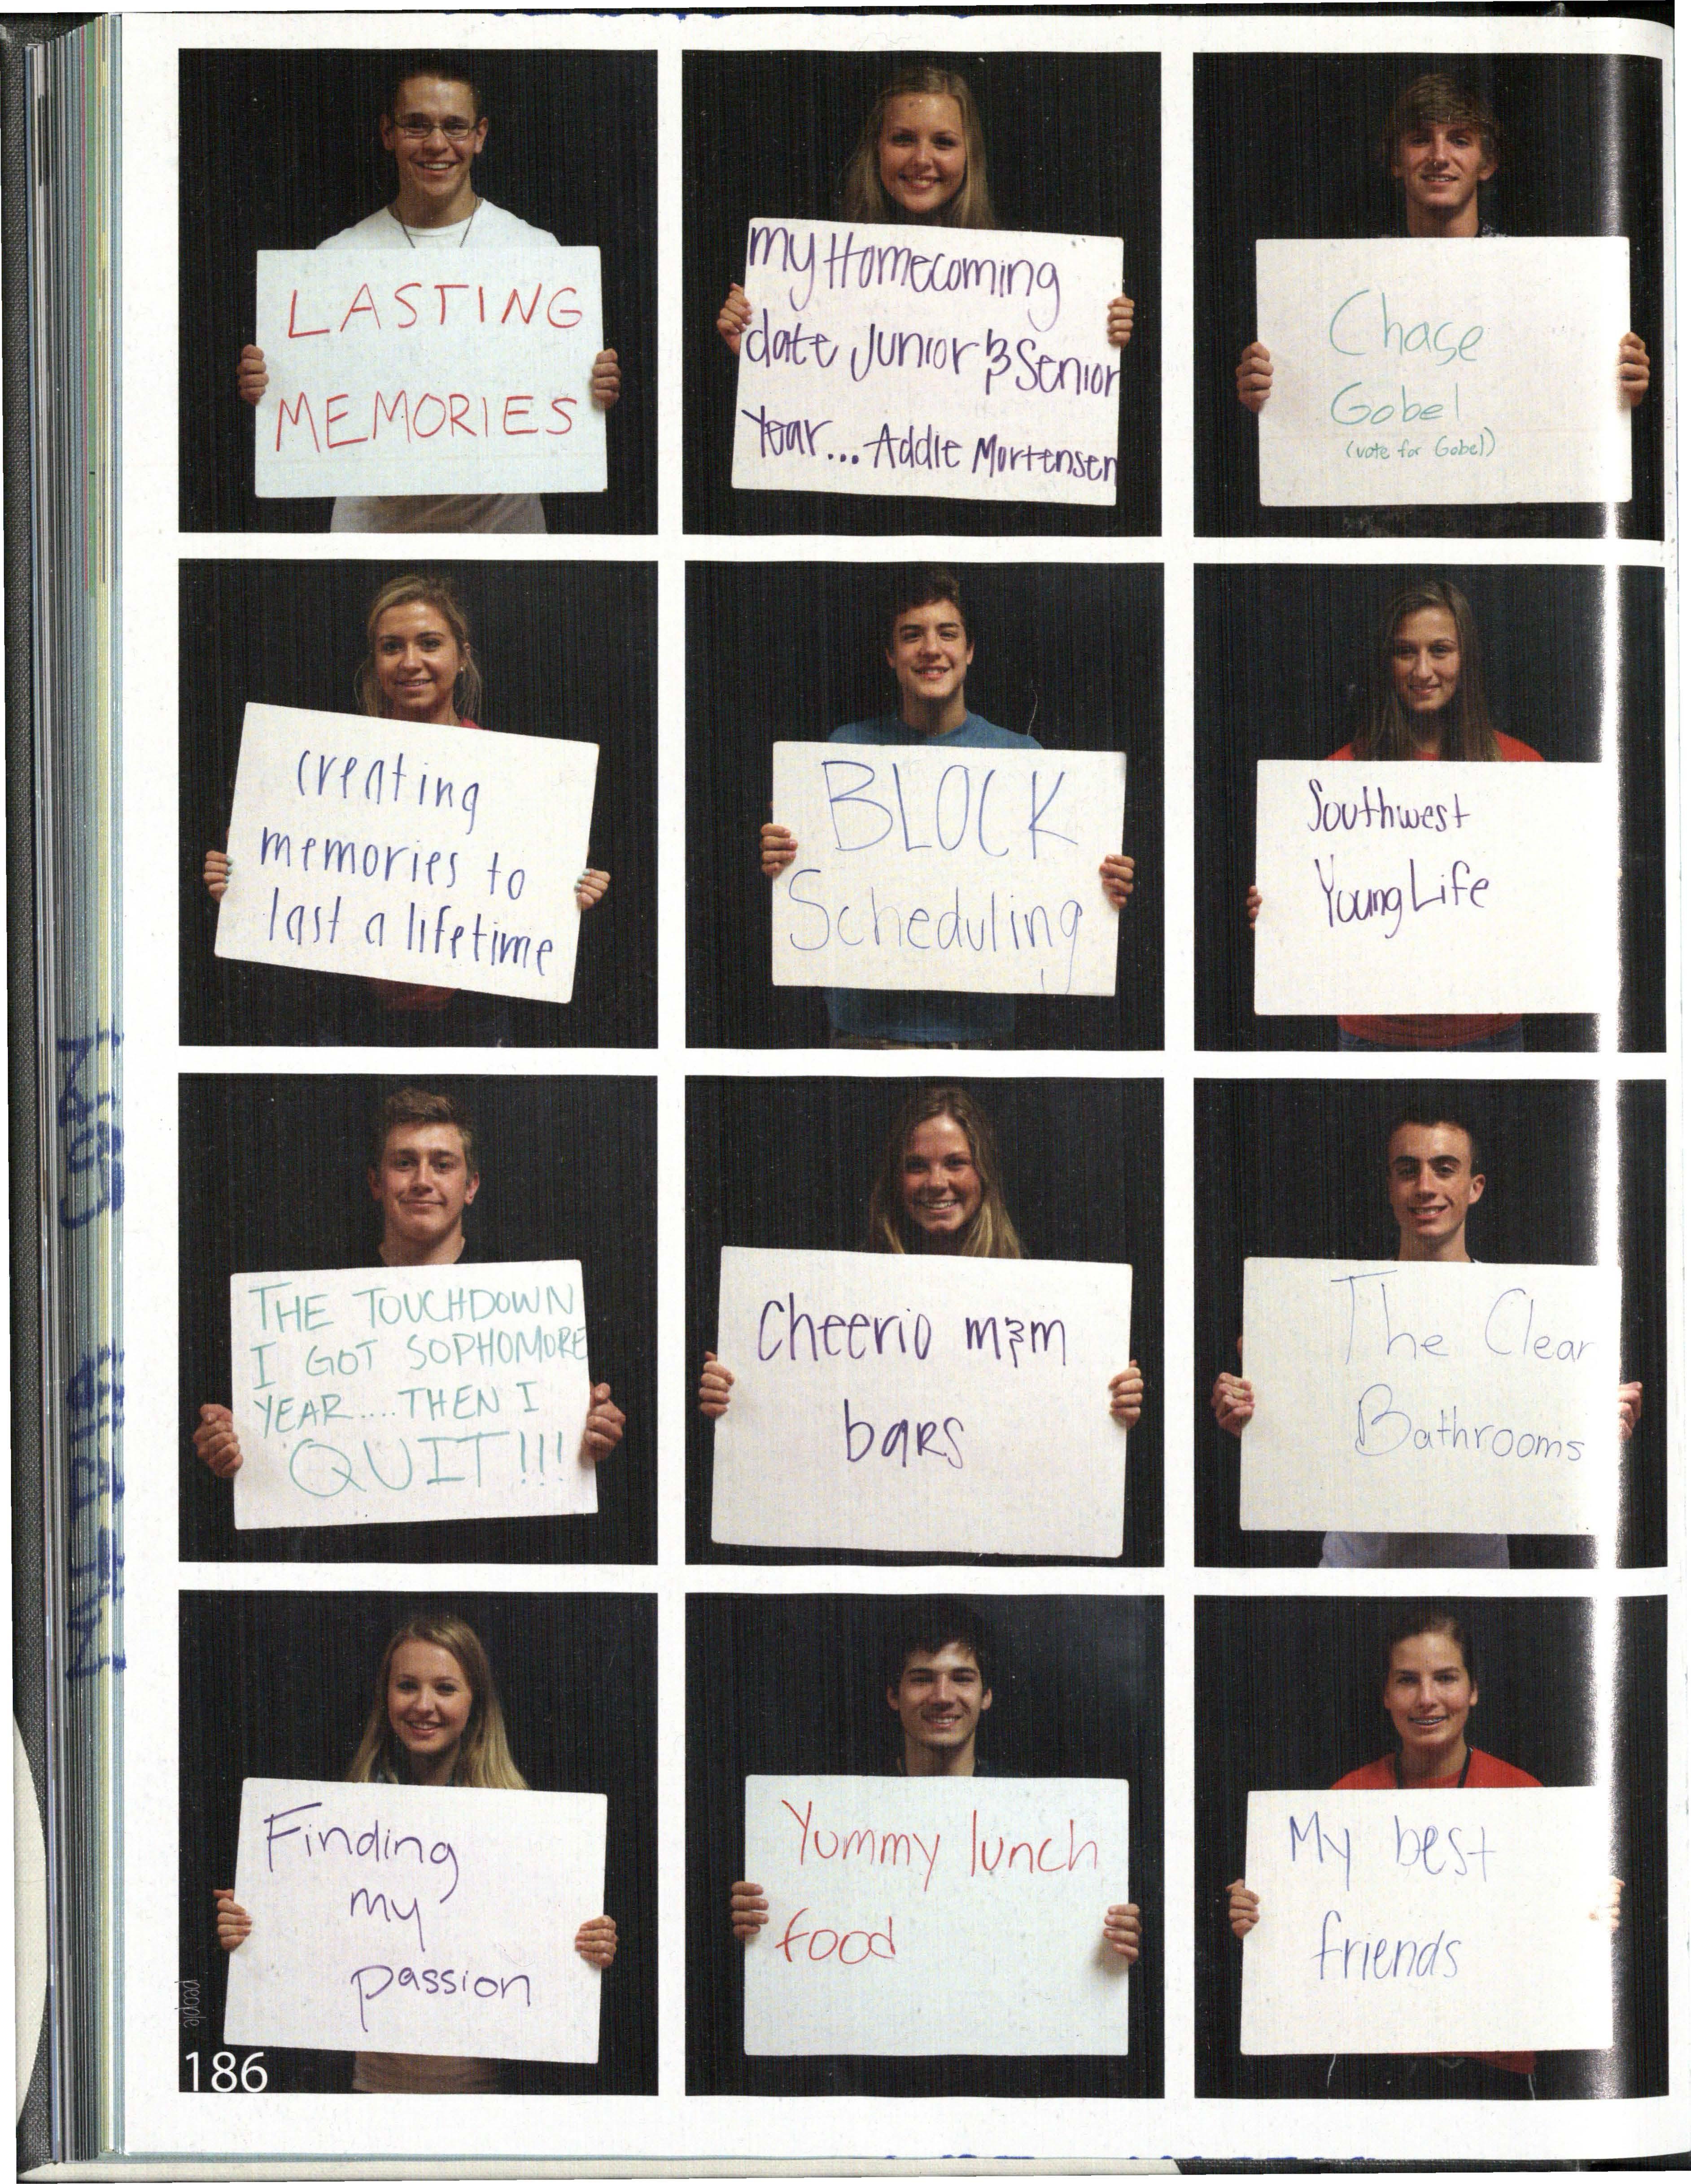 LASTING
MEMORIES
my Homecoming
date Junior & Senior
Year... Addie Mortensen
Chase
Gobel
(vote for Gobel)
creating
memories to
last a lifetime
BLOCK
Scheduling
Southwest
Young Life
THE TOUCHDOWN
I GOT SOPHOMORE
YEAR.... THEN I
QUIT!!!
Cheerio m&m
bars
The Clear
Bathrooms
Finding
my
passion
Yummy lunch
food
My best
friends
people
186